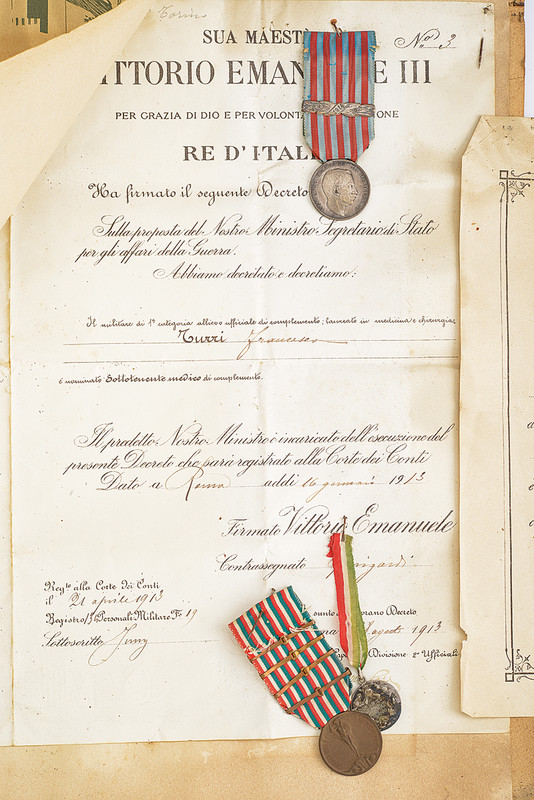 Torino
SUA MAEST
N.º 3
TTORIO EMAN E III
PER GRAZIA DI DIO E PER VOLONT IONE
RE D'ITALI
Ha firmato il seguente Decreto
Sulla proposta del Nostro Ministro Segretario di Stato
per gli affari della Guerra.
Abbiamo decretato e decretiamo:
Il militare di 1ª categoria allievo ufficiale di complemento, laureato in medicina e chirurgia
Turri Francesco
è nominato Sottotenente medico di complemento.
Il predetto Nostro Ministro è incaricato dell'esecuzione del
presente Decreto che sarà registrato alla Corte dei Conti
Dato a Roma addì 16 gennaio 1913
Firmato Vittorio Emanuele
Contrassegnato
Regto alla Corte dei Conti
il 21 aprile 1913
Registro/3º Personali Militare Fº 19
Sottoscritto
sunto rano Decreto
agosto 1913
Divisione 2ª Ufficiali